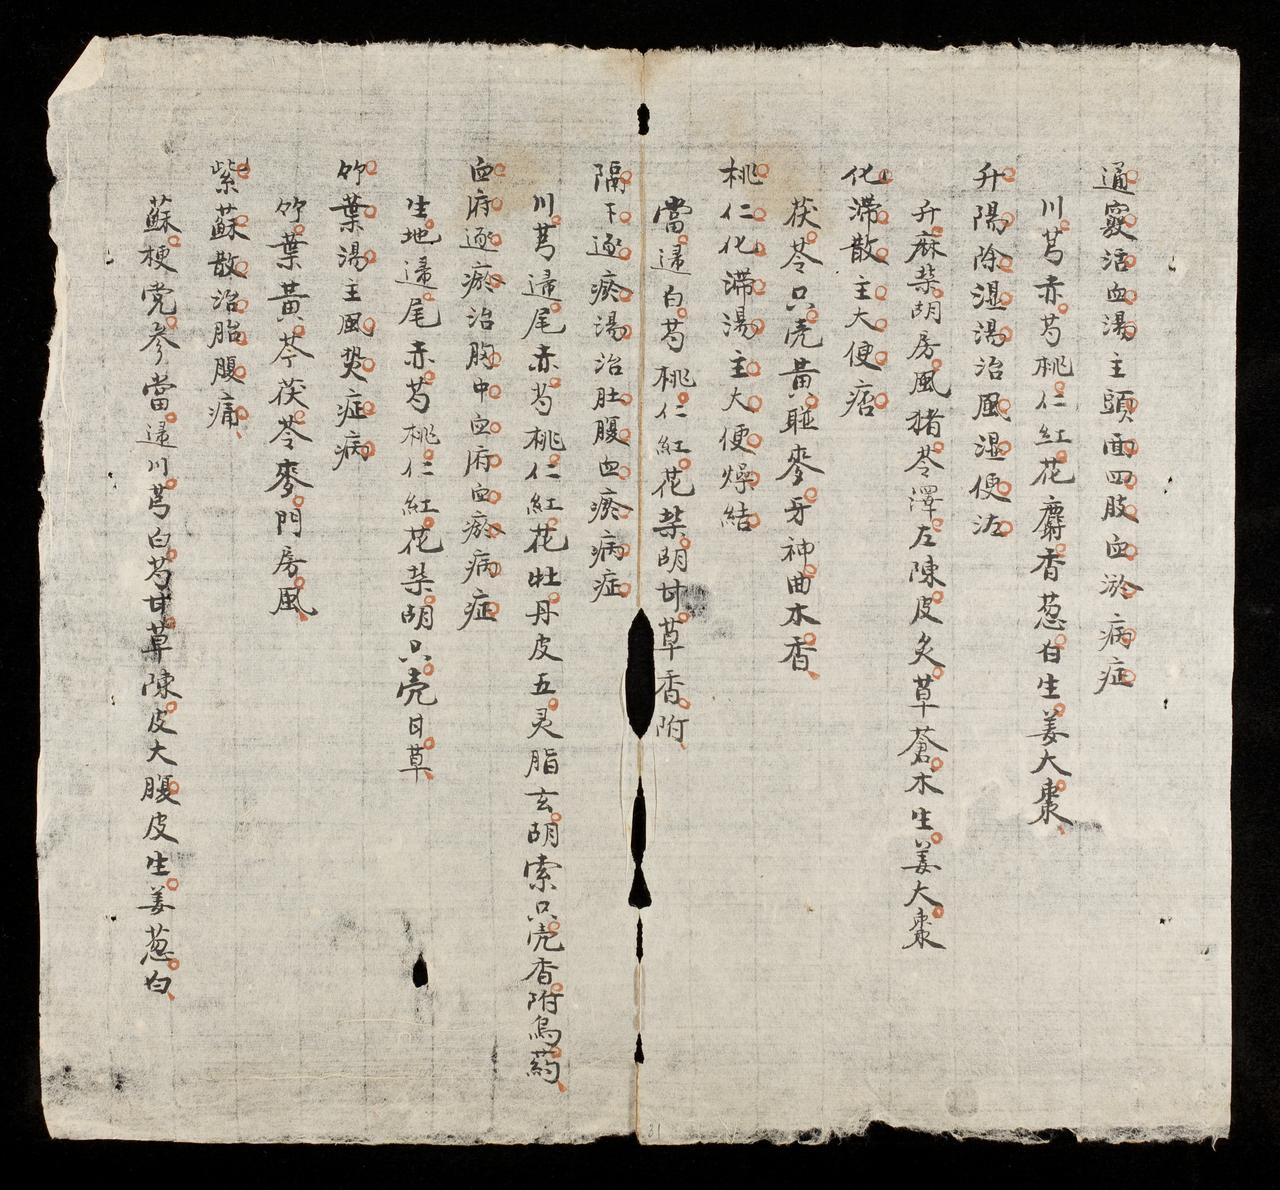 通竅活血湯主頭面四肢血瘀病症
川芎赤芍桃仁紅花麝香葱白生姜大棗
升陽除湿湯治風湿便泫
升麻柴胡房風猪苓澤左陳皮炙草蒼木生姜大棗
化滞散主大便痞
茯苓只売黃聠麥牙神曲木香
桃仁化滞湯主大便燥結
當逿白芍桃仁紅花柴胡甘草香附
隔下逐瘀湯治肚腹血瘀病症
川芎逿尾赤芍桃仁紅花牡丹皮五灵脂玄胡索只売香附烏葯
血府逐瘀治胸中血府血瘀病症
生地逿尾赤芍桃仁紅花柴胡只売甘草
竹葉湯主風热症病
竹葉黃芩茯苓麥門房風
紫蘇散治胎腹痛
蘇梗党參當逿川芎白芍甘草陳皮大腹皮生姜葱白
31